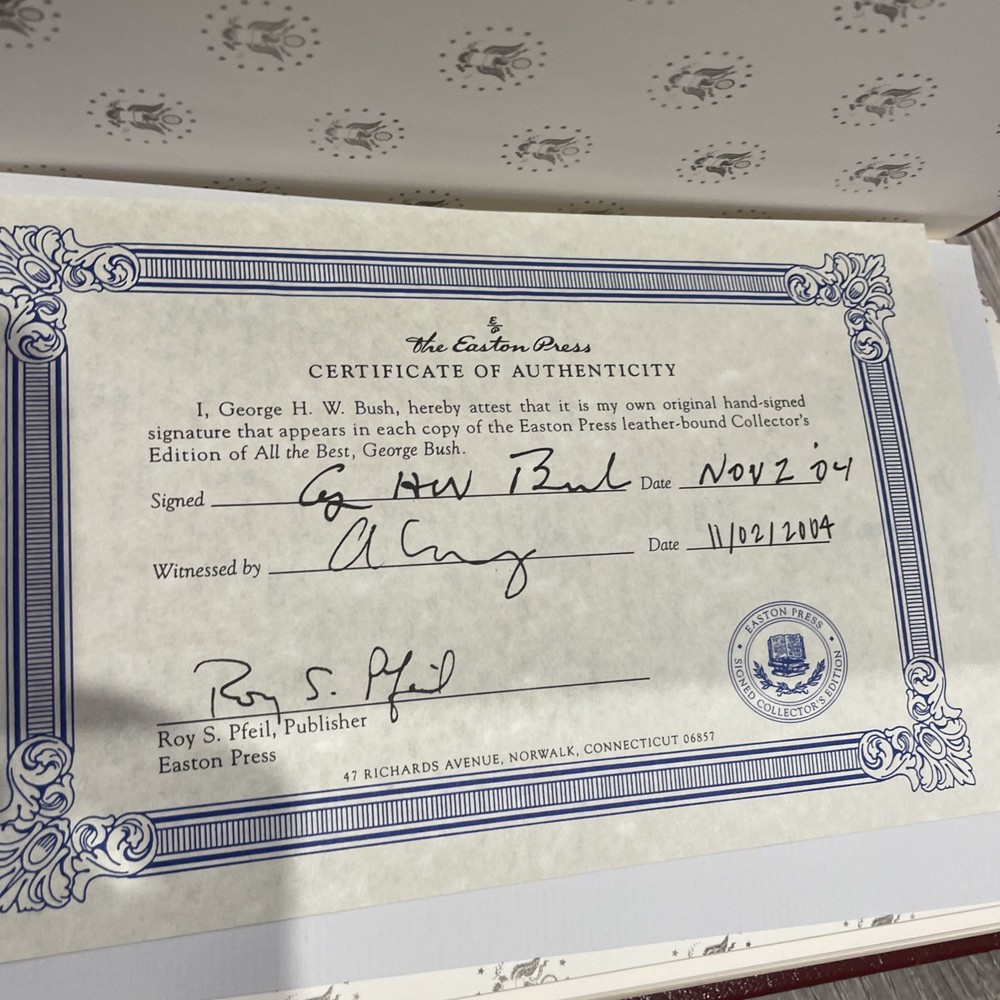 E/P
the Easton Press
CERTIFICATE OF AUTHENTICITY
I, George H. W. Bush, hereby attest that it is my own original hand-signed
signature that appears in each copy of the Easton Press leather-bound Collector's
Edition of All the Best, George Bush.
Signed G HW Bush Date NOV 2 '04
Witnessed by Date 11/02/2004
Roy S. Pfeil
Roy S. Pfeil, Publisher
Easton Press
47 RICHARDS AVENUE, NORWALK, CONNECTICUT 06857
EASTON PRESS
SIGNED COLLECTOR'S EDITION